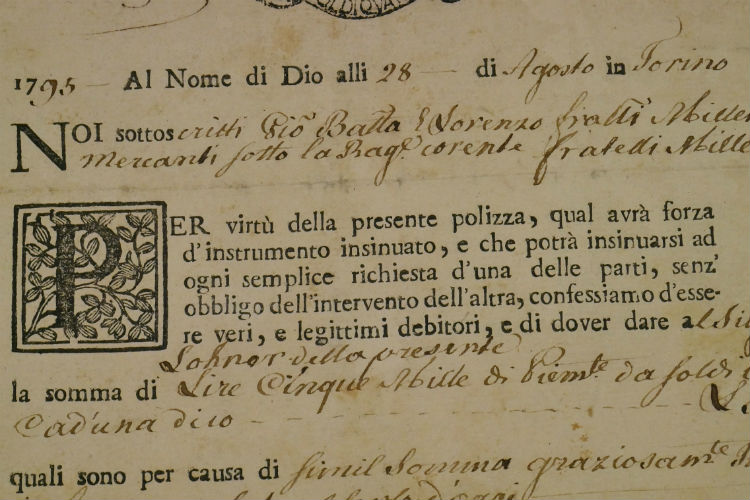 1795 — Al Nome di Dio alli 28 — di Agosto in Torino
NOI sottoscritti Gio Batta e Lorenzo fratti Miller
mercanti sotto la Rage corente fratelli Mille
PER virtù della presente polizza, qual avrà forza
d'instrumento insinuato, e che potrà insinuarsi ad
ogni semplice richiesta d'una delle parti, senz'
obbligo dell'intervento dell'altra, confessiamo d'esse-
re veri, e legittimi debitori, e di dover dare al
della presente
la somma di Lire Cinque Mille di Piemte da soldi
Cad'una dico —
quali sono per causa di simil somma graziosamte
d'oggi